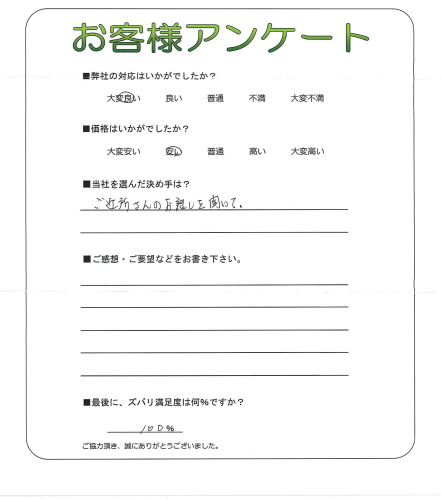 お客様アンケート
■弊社の対応はいかがでしたか？
大変良い 良い 普通 不満 大変不満
■価格はいかがでしたか？
大変安い 安い 普通 高い 大変高い
■当社を選んだ決め手は？
ご近所さんのお話しを聞いて。
■ご感想・ご要望などをお書き下さい。
■最後に、ズバリ満足度は何％ですか？
100%
ご協力頂き、誠にありがとうございました。